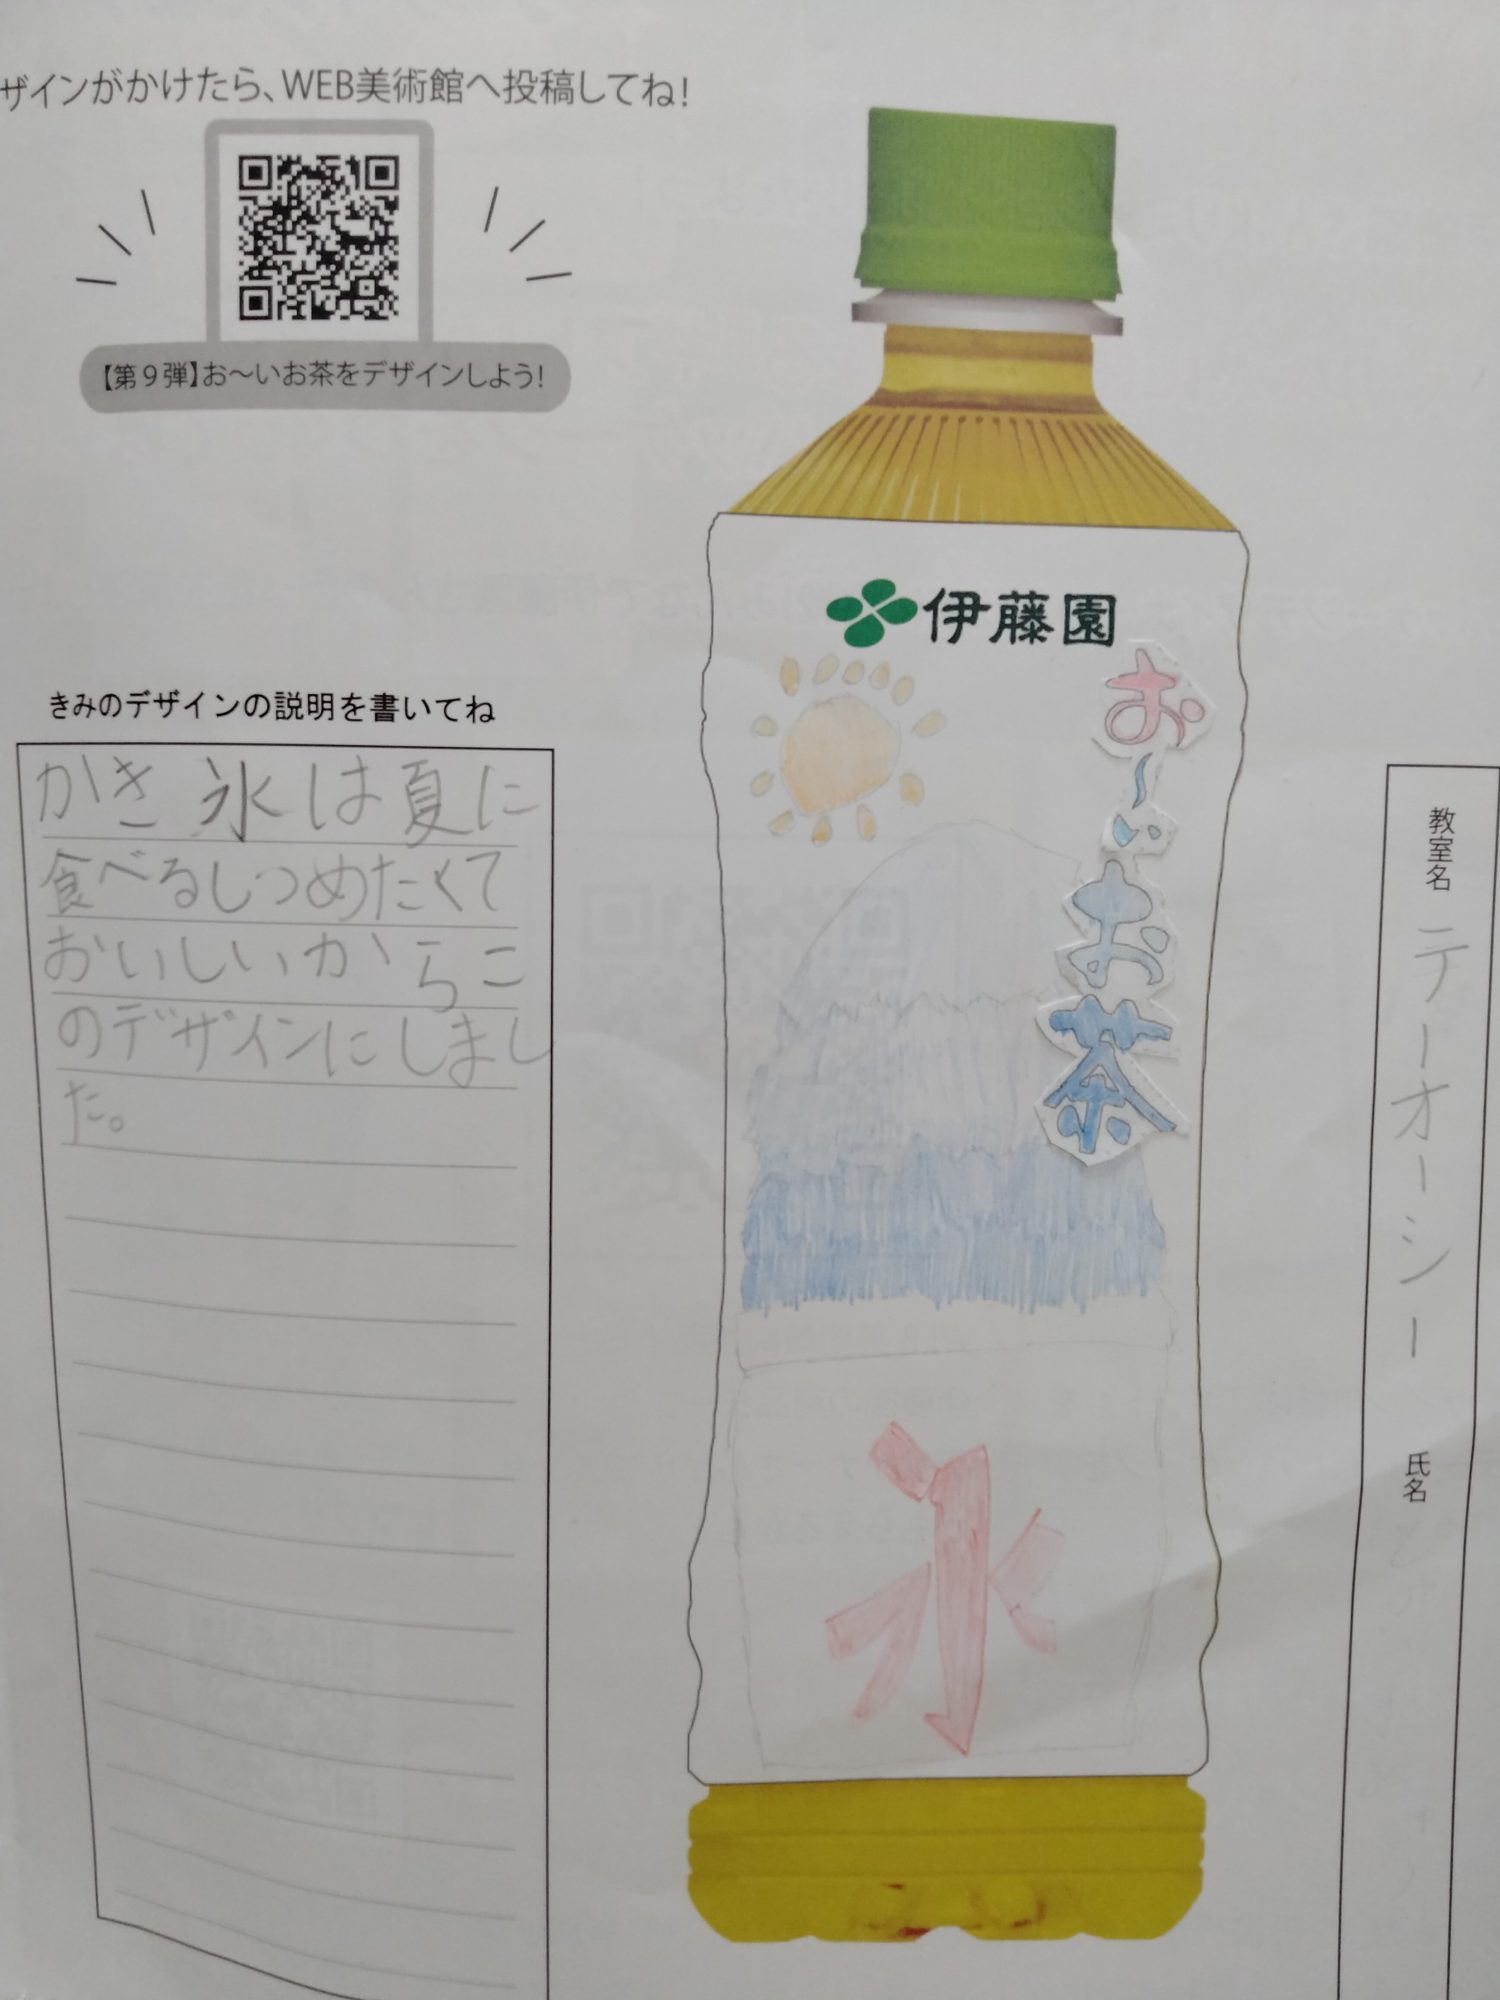 ザインがかけたら、WEB美術館へ投稿してね!
【第9弾】お～いお茶をデザインしよう!
伊藤園
お～いお茶
氷
きみのデザインの説明を書いてね
かき氷は夏に
食べるしつめたくて
おいしいからこ
のデザインにしまし
た。
教室名 テーオーシー
氏名